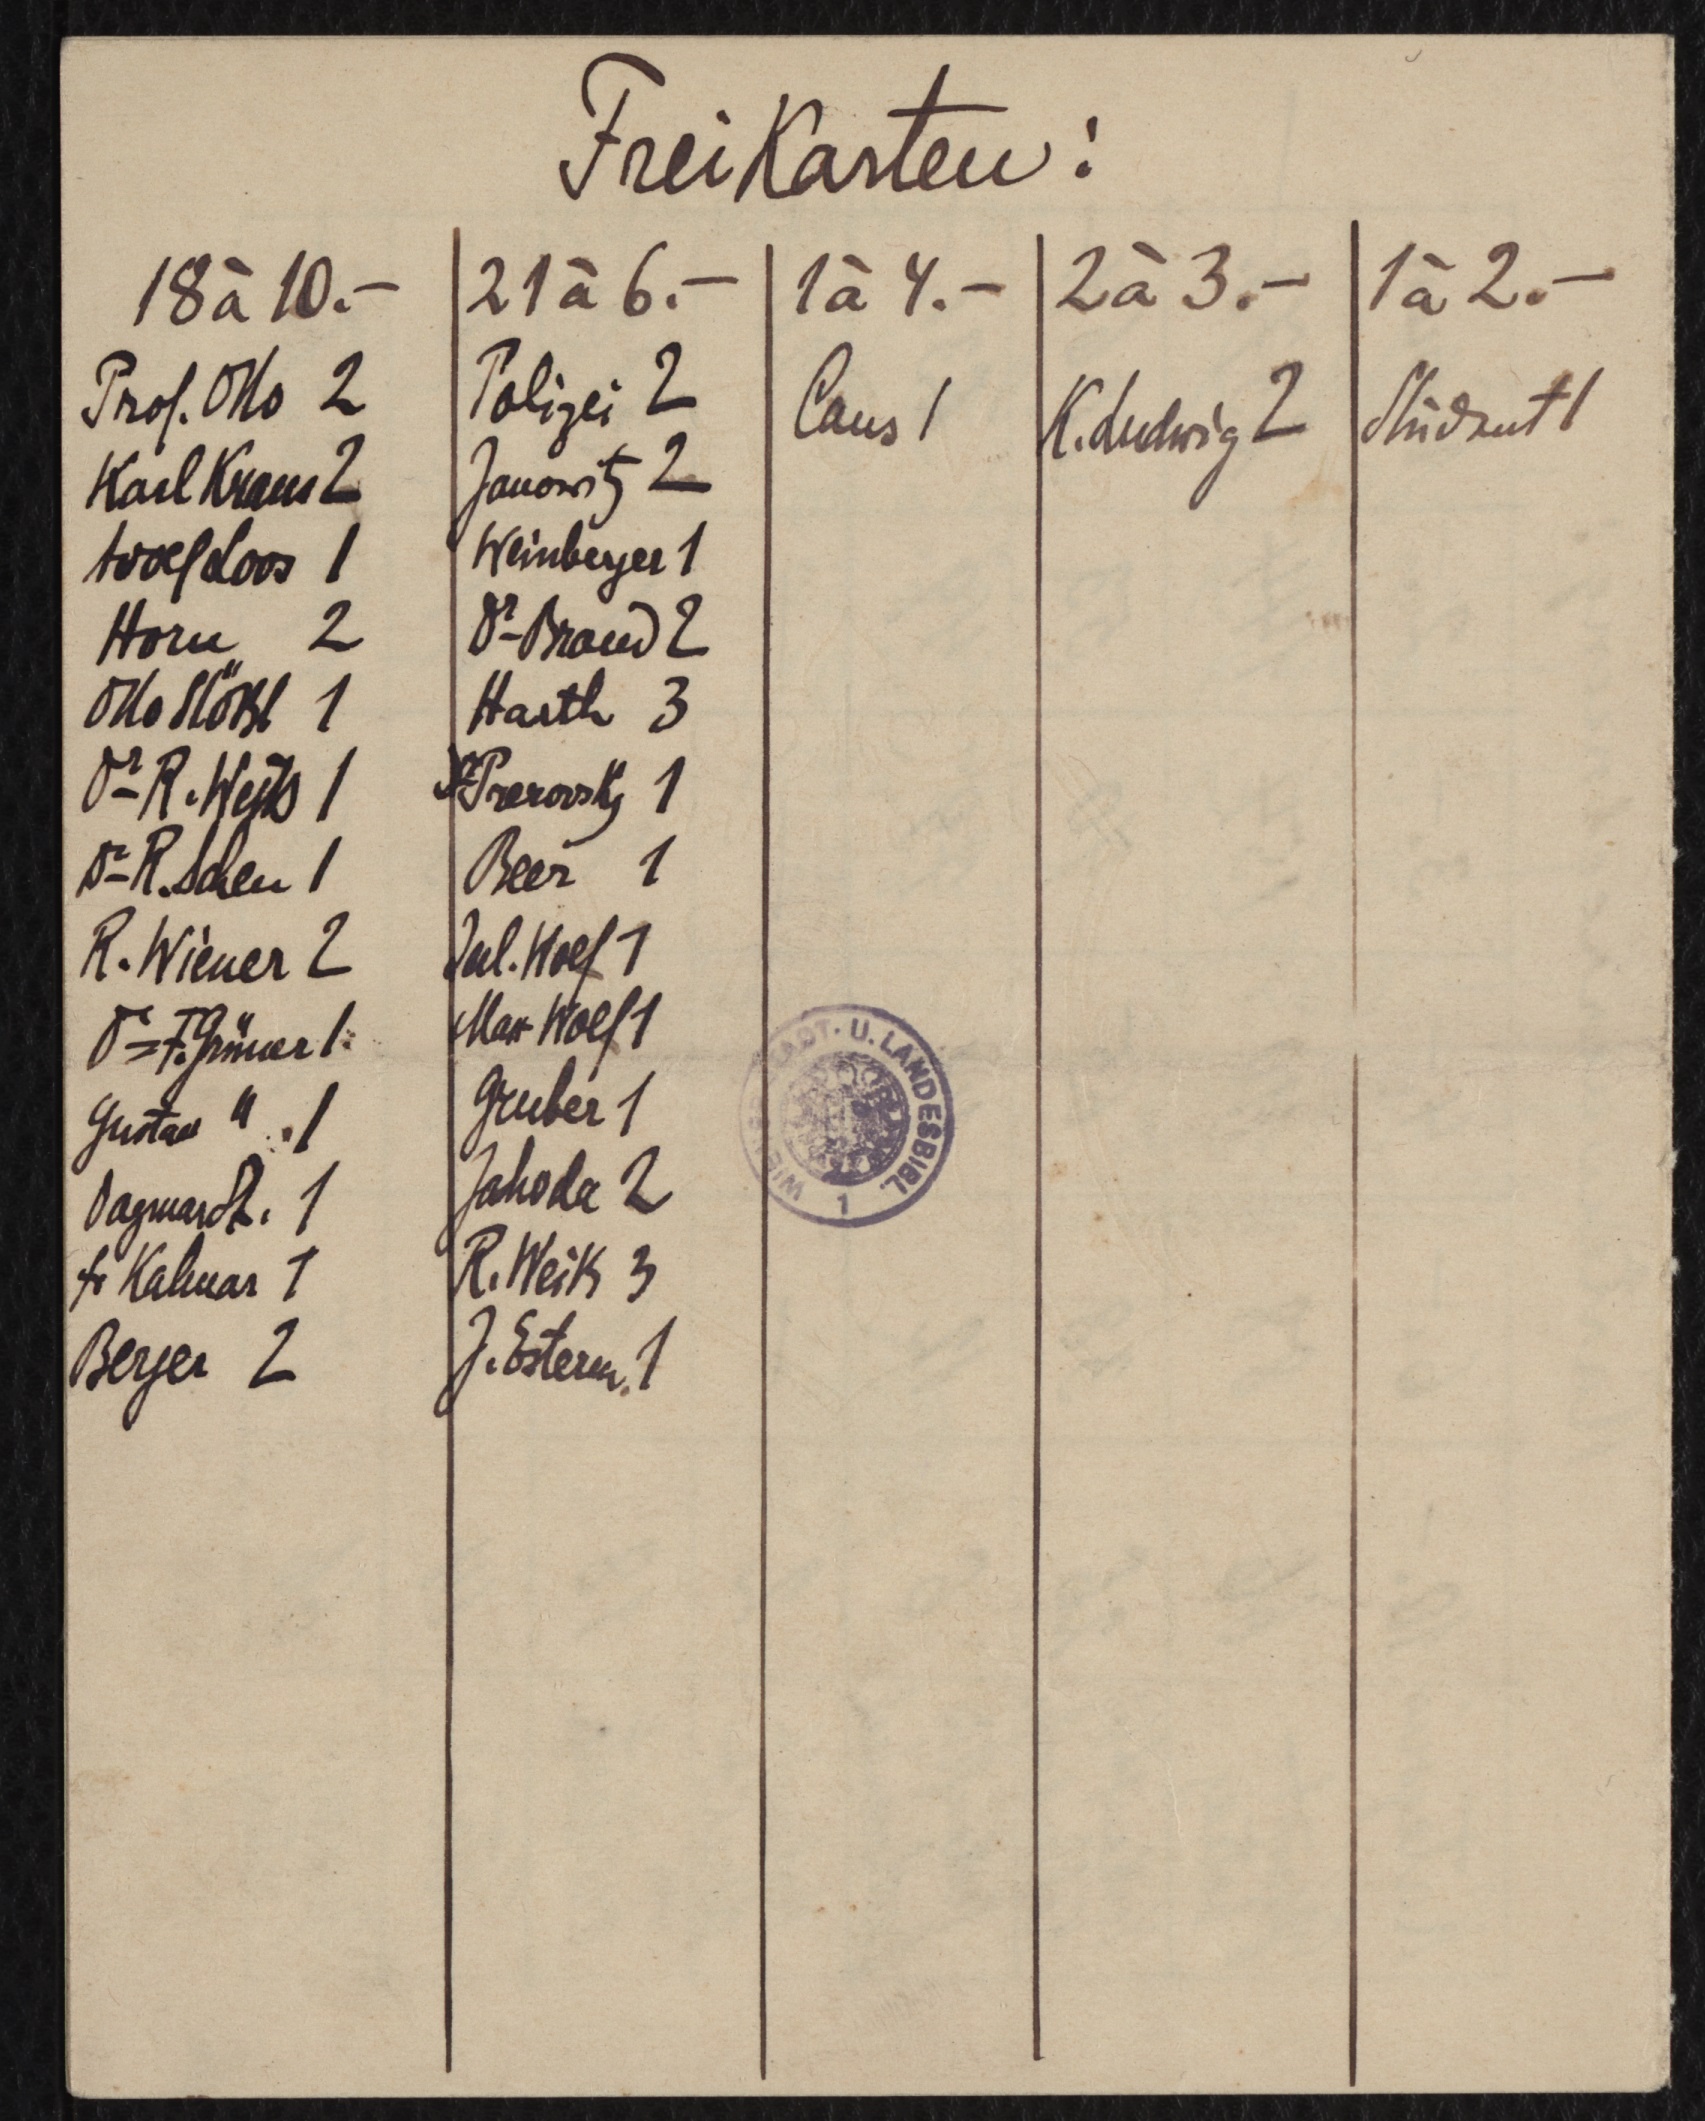 Freikarten:
18 à 10.-
Prof. Otto 2
Karl Kraus 2
Adolf Loos 1
Horn 2
Otto Stößl 1
Dr R. Weiß 1
Dr R. Scheu 1
R. Wiener 2
Dr F. Grüner 1
Gustav " 1
Dagmar St. 1
Kalmar 1
Berger 2
21 à 6.-
Polizei 2
Janowitz 2
Weinberger 1
Dr Brand 2
Harth 3
Prerovsky 1
Beer 1
Jul. Wolf 1
Max Wolf 1
Gruber 1
Jahoda 2
R. Weiß 3
J. Esterm. 1
1 à 4.-
1
2 à 3.-
K. Ludwig 2
1 à 2.-
Student 1
WIENER STADT. U. LANDESBIBL. 1